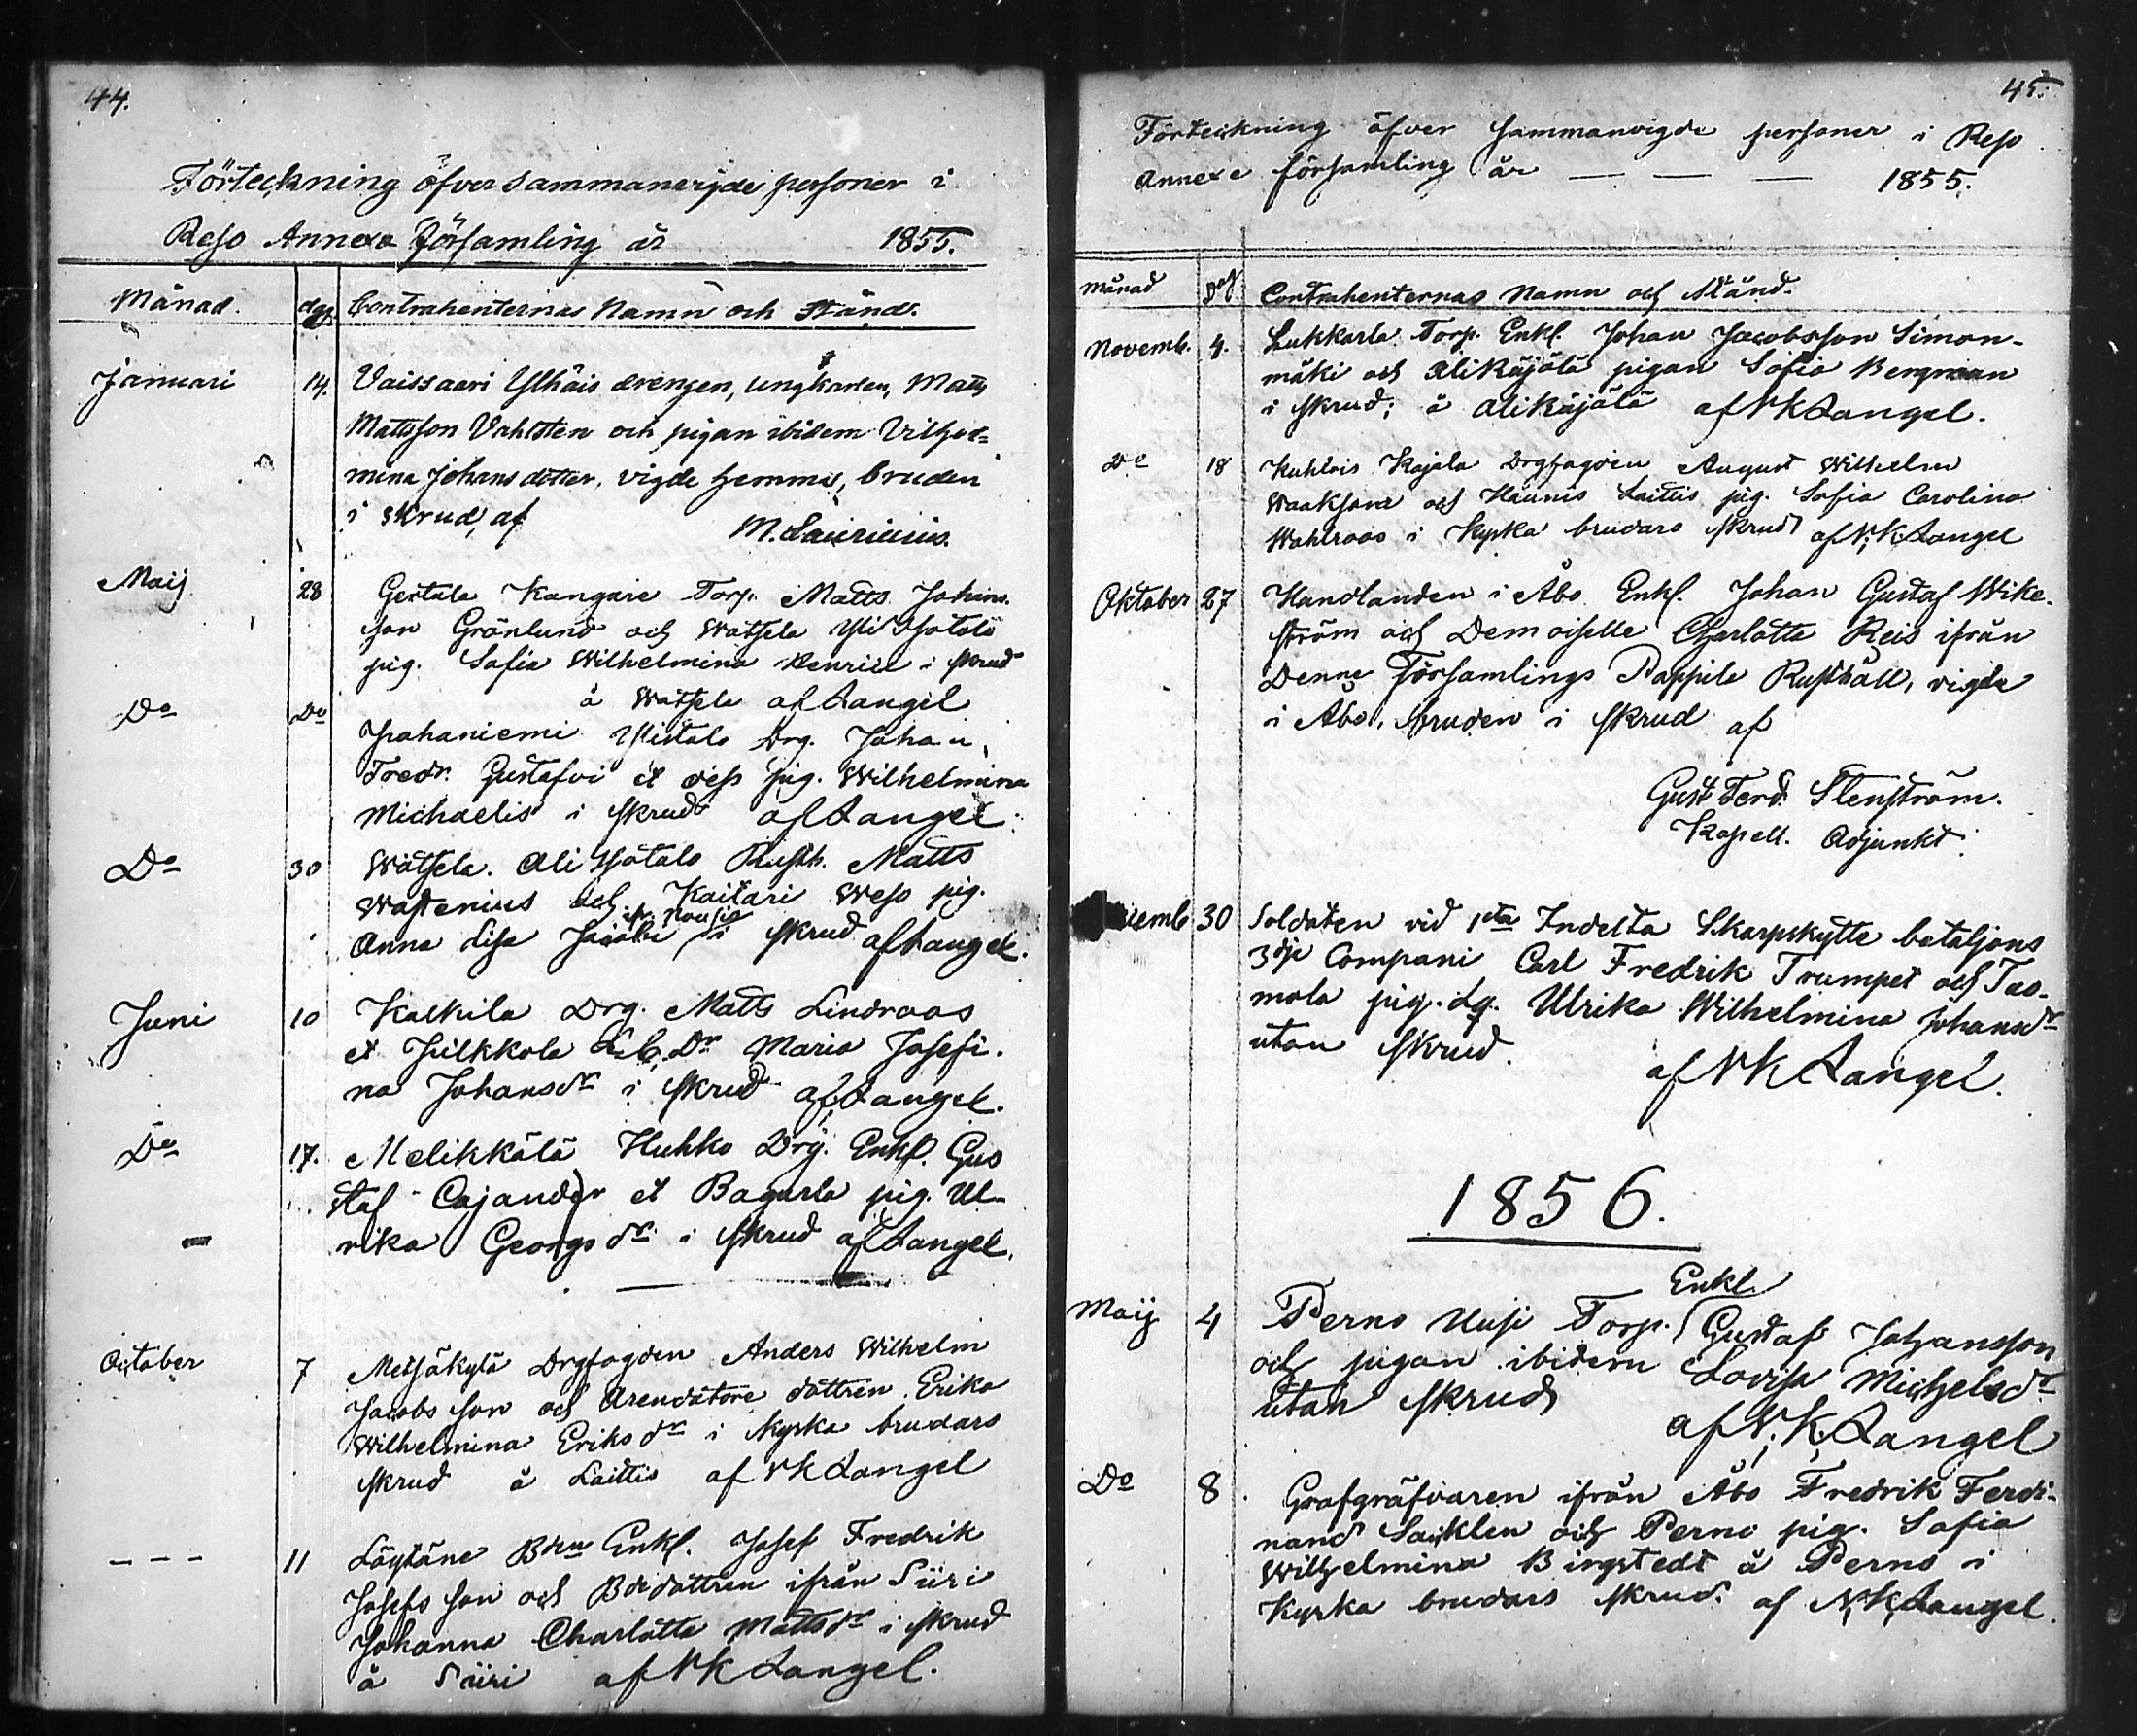 44.
Förteckning öfver sammanvigde personer i
Reso Annexe församling år 1855.
Månad. dag Contrahenternas Namn och Stånd.
Januari 14. Vaissaari Ylhäis drengen, ungkarlen, Matts
Mattsson Vahlsten och pigan ibidem Vilhel-
mina Johansdotter, vigde hemma, bruden
i skrud, af M. Laurinius.
Maij 28 Gertala Kangare Torp. Matts Johans-
son Grönlund och Wätsela Yli Isotalo
pig. Sofia Wilhelmina Henrici i skrud
å Wätsela af Langel
Do Do Ylistalo Drg. Johan
Fredr. Gustafvi et dess pig. Wilhelmina
Michaelis i skrud af Langel.
Do 30 Wätsela. Ali Isotalo Rusth. Matts
Wastenius och Kaitari Weso pig.
fr. Nousis
Anna Lisa Jacobi i skrud af Langel.
Juni 10 Kaukila Drg. Matts Lindroos
et Julkkola Dr Maria Josefi-
na Johansdr i skrud af Langel.
Do 17. Melikkälä Huhko Drg. Enkl. Gus
taf Cajander et Bagarla pig. Ul-
rika Georgsdr i skrud af Langel.
October 7 Metsäkylä Drgfogden Anders Wilhelm
Jacobsson och Arendatore dottren Erika
Wilhelmina Eriksdr i Kyrko brudars
skrud å Laittis af NK Langel
--- 11 Löytäne Bden Enkl. Josef Fredrik
Josefsson och Bdedottren ifrån Siiri
Johanna Charlotta Mattsdr i skrud
å Siiri af NK Langel.
45.
Förteckning öfver sammanvigde personer i Reso
Annexe församling år — — — 1855.
Månad Dag Contrahenternas Namn och Stånd.
Novemb. 4. Lukkarla Torp. Enkl. Johan Jacobsson Simon-
mäki och Alikäjälä pigan Sofia Bergman
i skrud; å Alikäjälä af NK Langel.
Do 18 Kuhlois Kajala Drgfogden August Wilhelm
och Haunis Laittis pig. Sofia Carolina
Wahlroos i Kyrko brudars skrud af N.K. Langel
Oktober 27 Handlanden i Åbo Enkl. Johan Gustaf Wike-
ström och Demoiselle Charlotta Reis ifrån
Denne Församlings Pappila Rusthåll, vigda
i Åbo, bruden i skrud af
Gust. Ferd. Stenström.
Kapell. Adjunkt.
30 Soldaten vid 1sta Indelta Skarpskytte bataljons
3dje Compani Carl Fredrik Trumpet och Tuo-
mola pig. Lg. Ulrika Wilhelmina Johansdr
utan skrud. af NK Langel.
1856.
Enkl.
Maij 4 Perno Uusi Torp. Gustaf Johansson
och pigan ibidem Lovisa Michelsdr
utan skrud af N.K. Langel
Do 8. Grafgräfvaren ifrån Åbo Fredrik Ferdi-
nand Lacklen och Perno pig. Sofia
Wilhelmina Bingstedt å Perno i
Kyrko brudars skrud. af N.K. Langel.